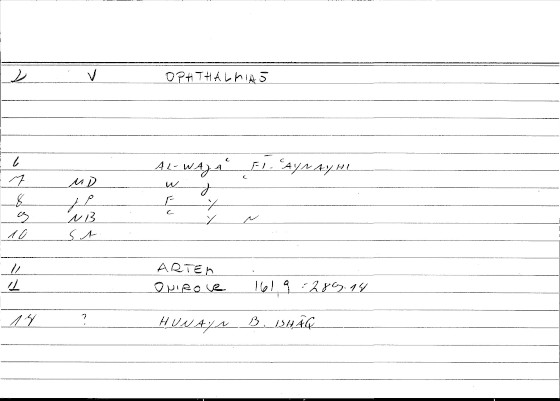 2 V OPHTHALMIAS
6 AL-WAJAʿ FĪ ʿAYNAYHI
7 MD W J ʿ
8 JP F Y
9 NB ʿ Y N
10 SN
11 ARTEM
12 ONIROCR 161,9 = 289.14
14 ? HUNAYN B. ISHĀQ